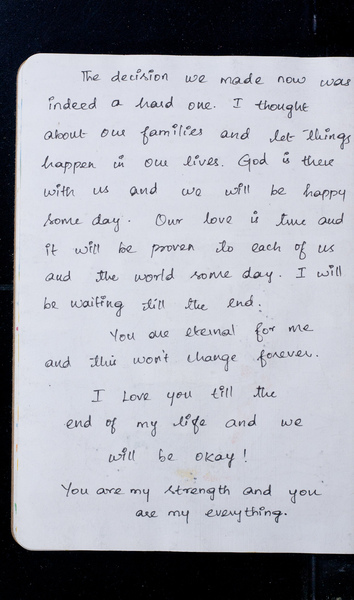 The decision we made now was
indeed a hard one. I thought
about our families and let things
happen in our lives. God is there
with us and we will be happy
some day. Our love is true and
it will be proven to each of us
and the world some day. I will
be waiting till the end.
You are eternal for me
and this won't change forever.
I Love you till the
end of my life and we
will be okay!
You are my strength and you
are my everything.